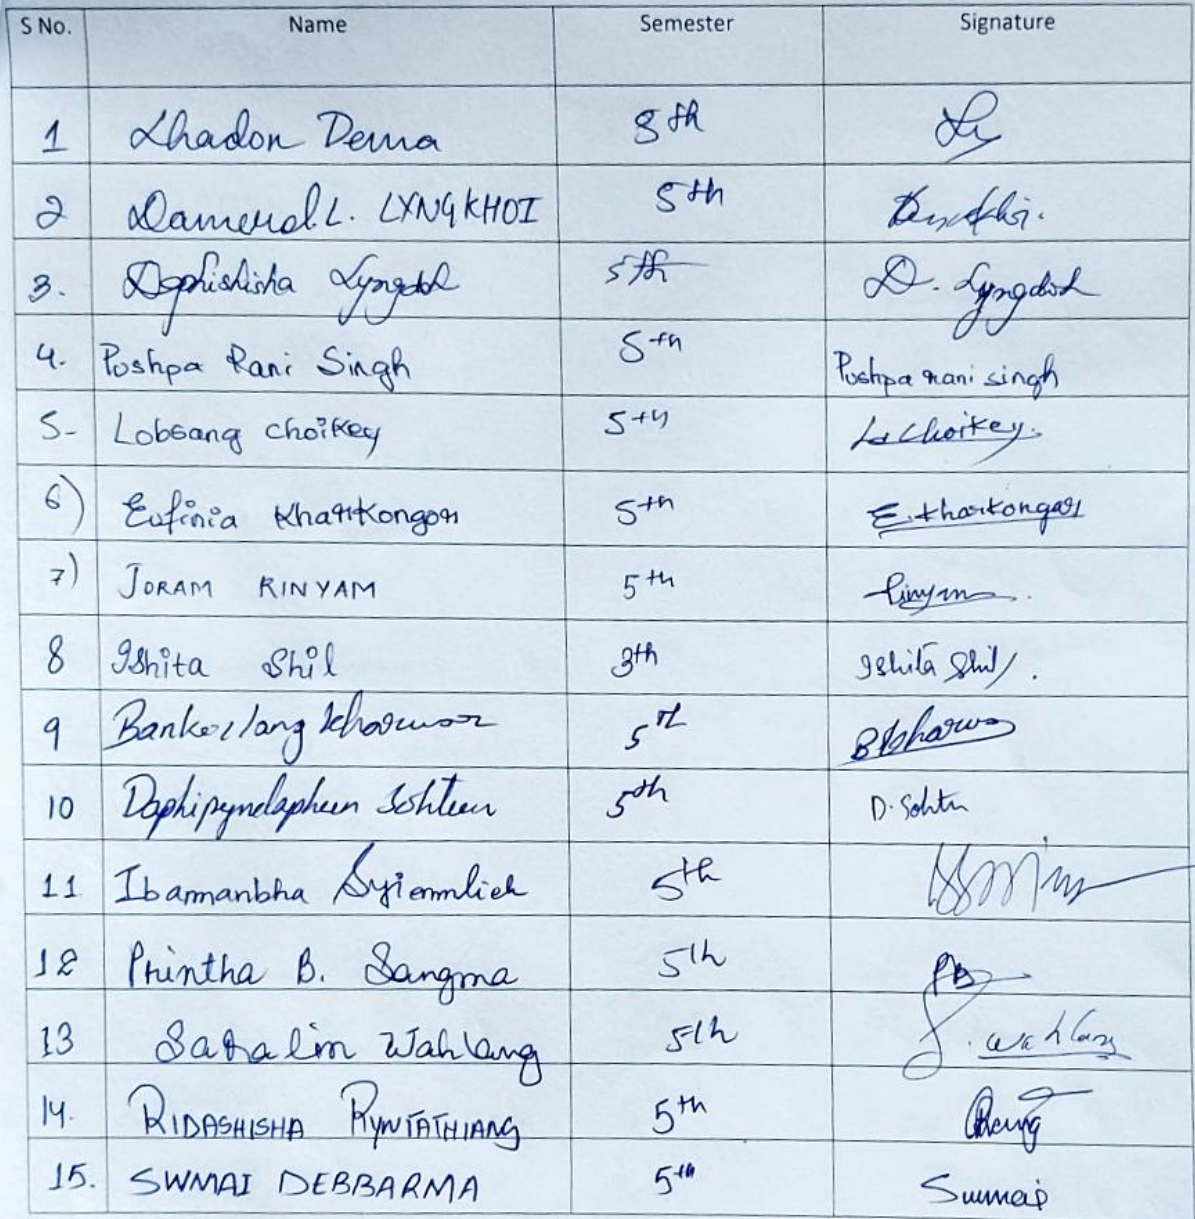 S No. Name Semester Signature
1 Lhadon Dema 8th
2 Dameral L. LYNGKHOI 5th
3. Daphishisha Lyngdoh 5th D. Lyngdoh
4. Pushpa Rani Singh 5th Pushpa rani singh
5- Lobsang choikey 5th L. Choikey.
6) Eufinia Kharkongor 5th E. kharkongor
7) JORAM RINYAM 5th Rinyam
8 Ishita Shil 3th Ishita Shil
9 Bankerlang kharwar 5th
10 Daphipyndapheen Sohtun 5th D. Sohtun
11 Ibamanbha Syiemlieh 5th
12 Printha B. Sangma 5th PB
13 Saralin Wahlang 5th S. Wahlang
14. RIDASHISHA RYNTATHIANG 5th
15. SWMAI DEBBARMA 5th Swmai